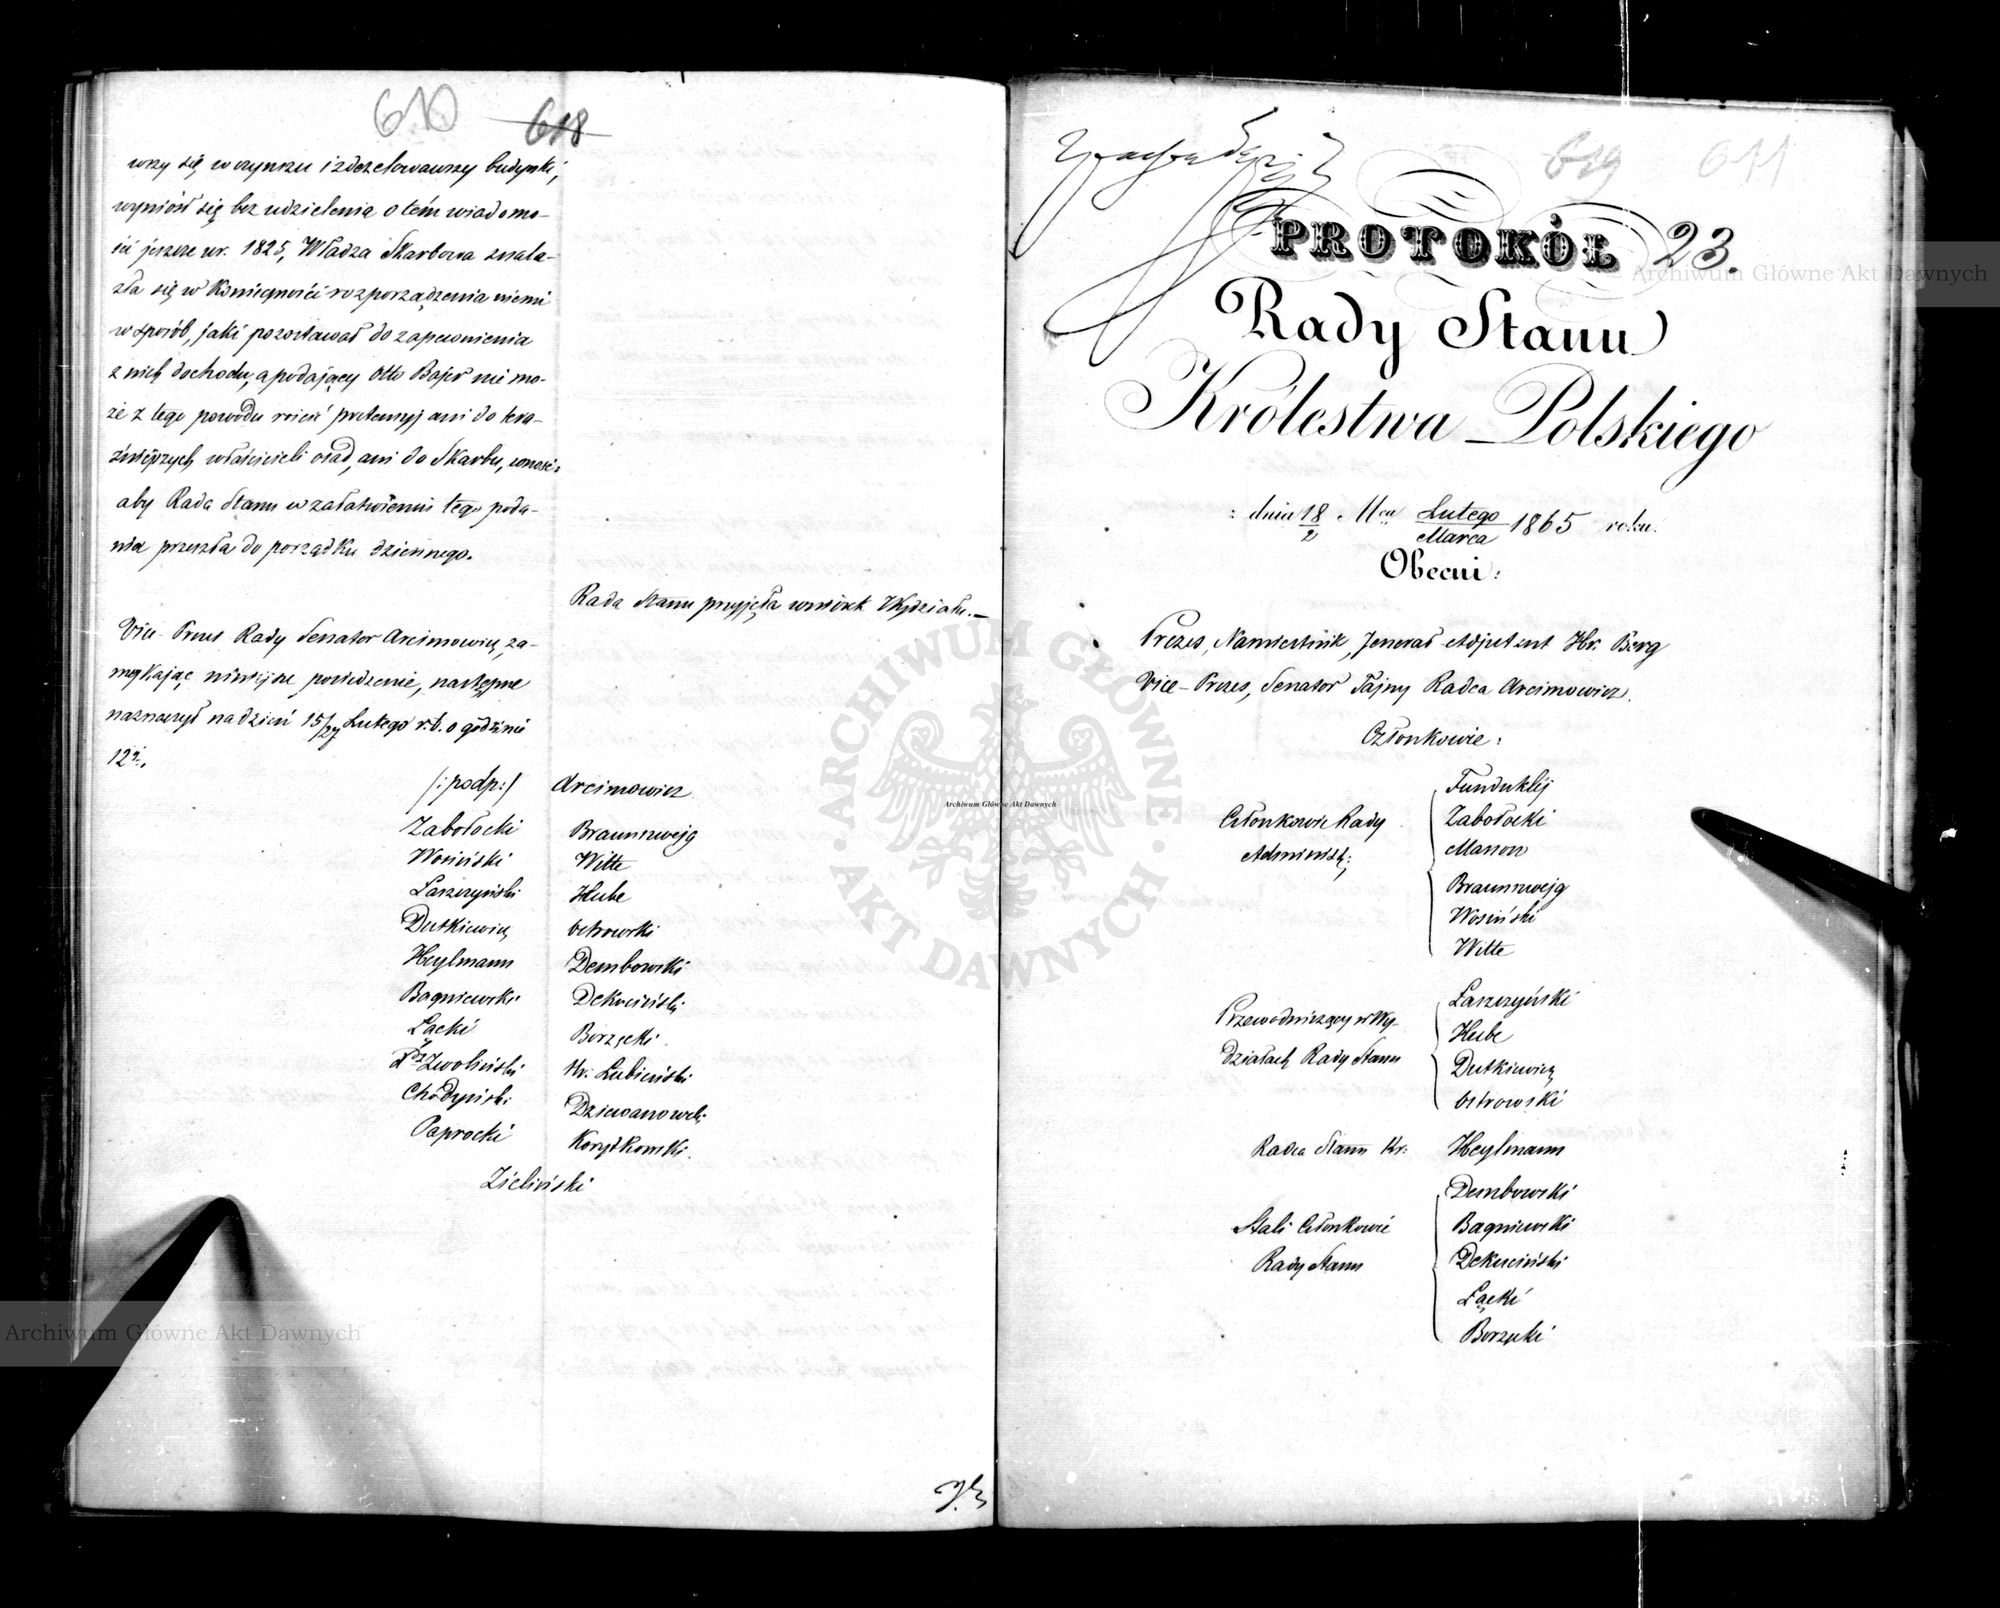 610 618
wszy się w czynszu i zdezelowawszy budynki,
wyniósł się bez udzielenia o tém wiadomo-
ści jeszcze w r. 1825, Władza Skarbowa znala-
zła się w konieczności rozporządzenia niemi
w sposób, jaki pozostawał do zapewnienia
z nich dochodu, a podający Otto Bajer nie mo-
że z tego powodu rościć pretensyj ani do tera-
źniejszych właścicieli osad, ani do Skarbu, wnosi:
aby Rada Stanu w załatwieniu tego poda-
nia przeszła do porządku dziennego.
Rada Stanu przyjęła wniosek Wydziału.—
Vice-Prezes Rady Senator Arcimowicz, za-
mykając niniejsze posiedzenie, następne
naznaczył na dzień 15/27 Lutego r. b. o godzinie
12éj.
/:podp:/ Arcimowicz
Zabołocki Braunszwejg
Wosiński Witte
Łaszczyński Hube
Dutkiewicz Ostrowski
Heylmann Dembowski
Bagniewski Dekuciński
Łącki Borzęcki
Zwoliński Hr. Łubieński
Chodyński Dziewanowski
Paprocki Korytkowski.
Zieliński
619 611
PROTOKÓŁ 23.
Rady Stanu
Królestwa Polskiego
dnia 18/2 Mca Lutego/Marca 1865 roku.
Obecni:
Prezes, Namiestnik, Jenerał Adjutant Hr. Berg
Vice-Prezes, Senator Tajny Radca Arcimowicz.
Członkowie:
Członkowie Rady
Administ:
Funduklėj
Zabołocki
Manson
Braunszwejg
Wosiński
Witte
Przewodniczący w Wy-
działach Rady Stanu
Łaszczyński
Hube
Dutkiewicz
Ostrowski
Radca Stanu Kr: Heylmann
Stali Członkowie
Rady Stanu
Dembowski
Bagniewski
Dekuciński
Łącki
Borzęcki
Archiwum Główne Akt Dawnych
Archiwum Główne Akt Dawnych
Archiwum Główne Akt Dawnych
ARCHIWUM GŁÓWNE AKT DAWNYCH